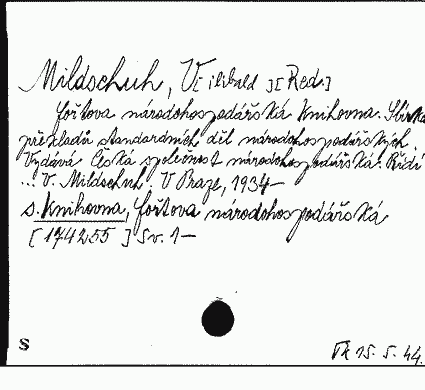 Mildschuh, Vilibald [Red.]
Fořtova národohospodářská knihovna. Sbírka
překladů standardních děl národohospodářských.
Vydává Česká společnost národohospodářská. Řídí
... V. Mildschuh. V Praze, 1934–
s. Knihovna, Fořtova národohospodářská
[174255] Sv. 1–
S
15. 5. 44.